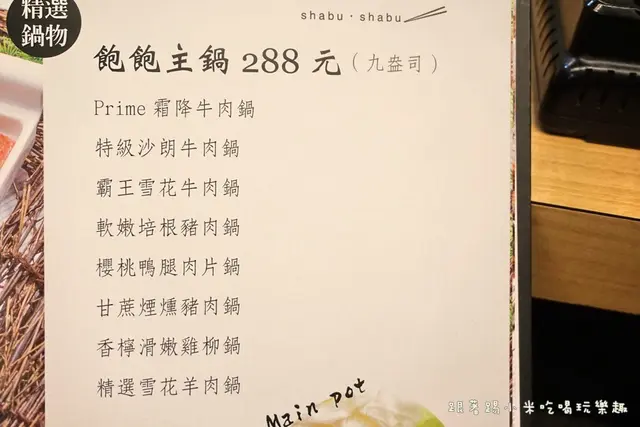 精選
鍋物
shabu · shabu
飽飽主鍋 288 元 (九盎司)
Prime 霜降牛肉鍋
特級沙朗牛肉鍋
霸王雪花牛肉鍋
軟嫩培根豬肉鍋
櫻桃鴨腿肉片鍋
甘蔗煙燻豬肉鍋
香檸滑嫩雞柳鍋
精選雪花羊肉鍋
Main pot
跟著踢小米吃喝玩樂趣